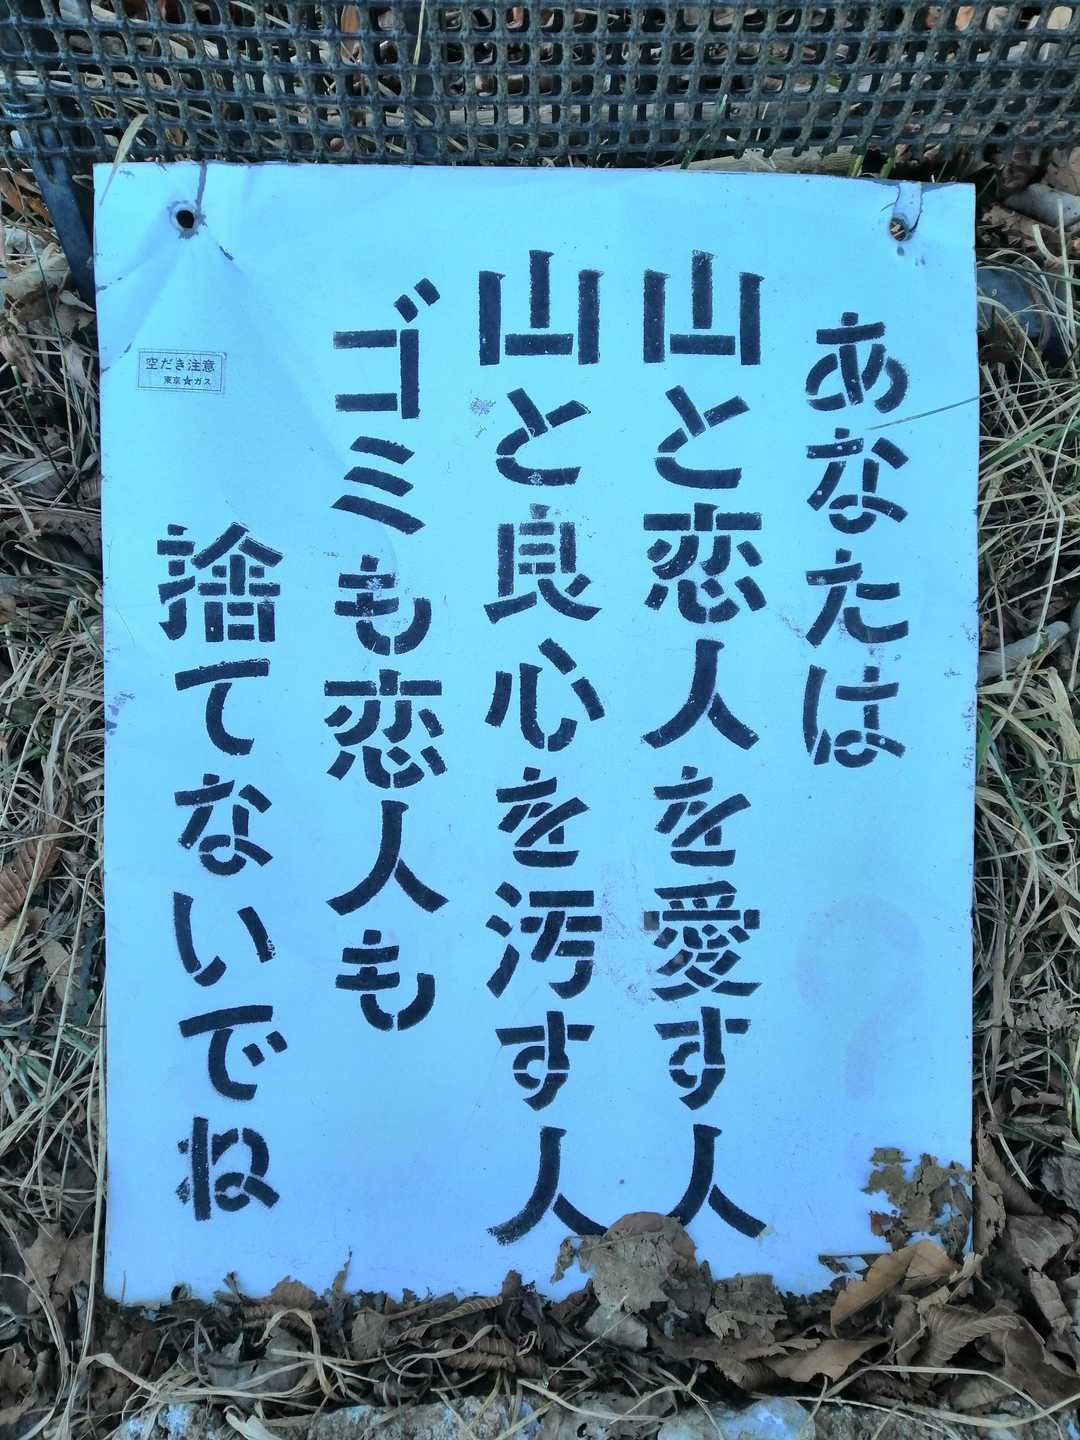 あなたは
山と恋人を愛す人
山と良心を汚す人
ゴミも恋人も
捨てないでね
空だき注意
東京★ガス